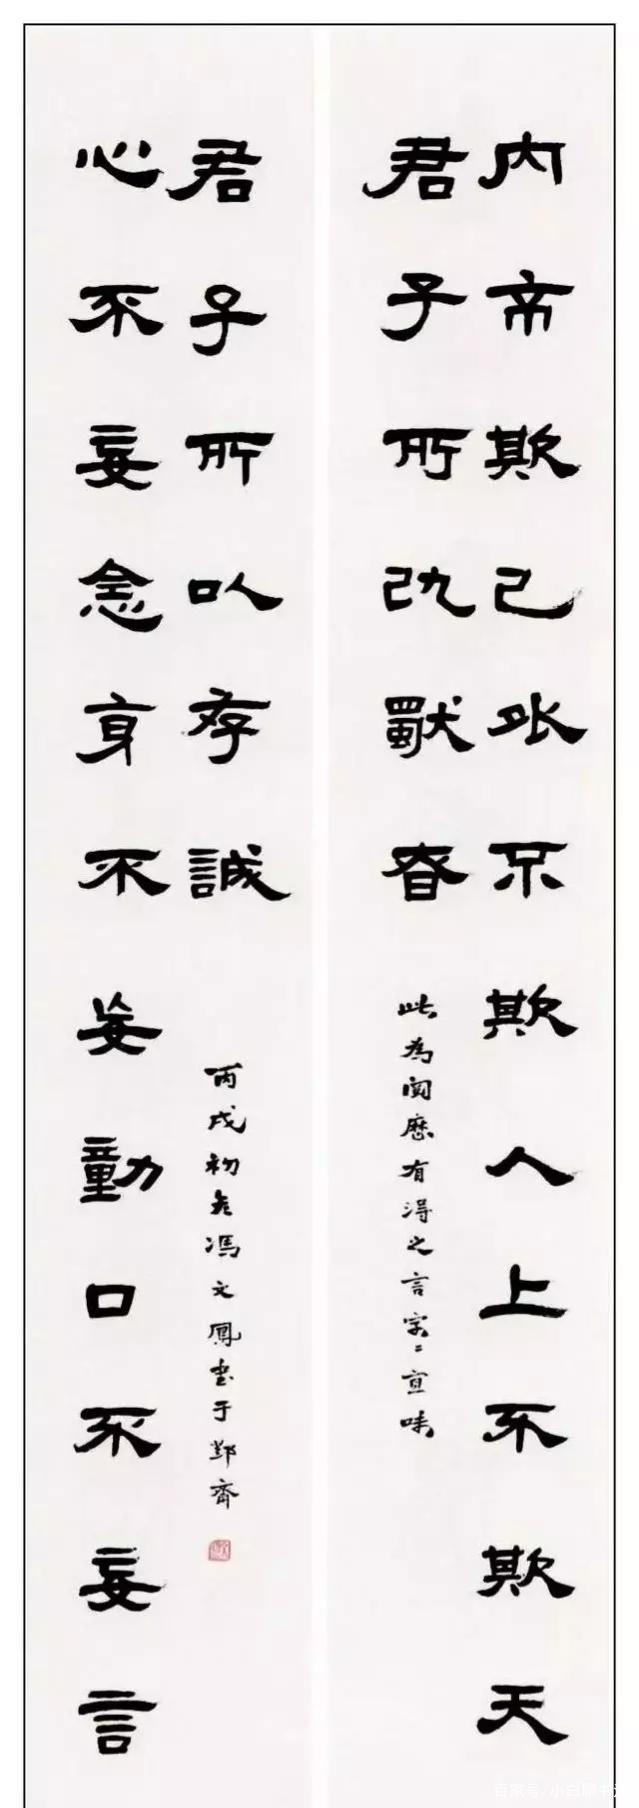 内不欺己外不欺人上不欺天
君子所以獨昚
此為閱歷有得之言字〻宜味
心不妄念身不妄動口不妄言
君子所以存誠
丙戌初冬馮文鳳書于鄴齋